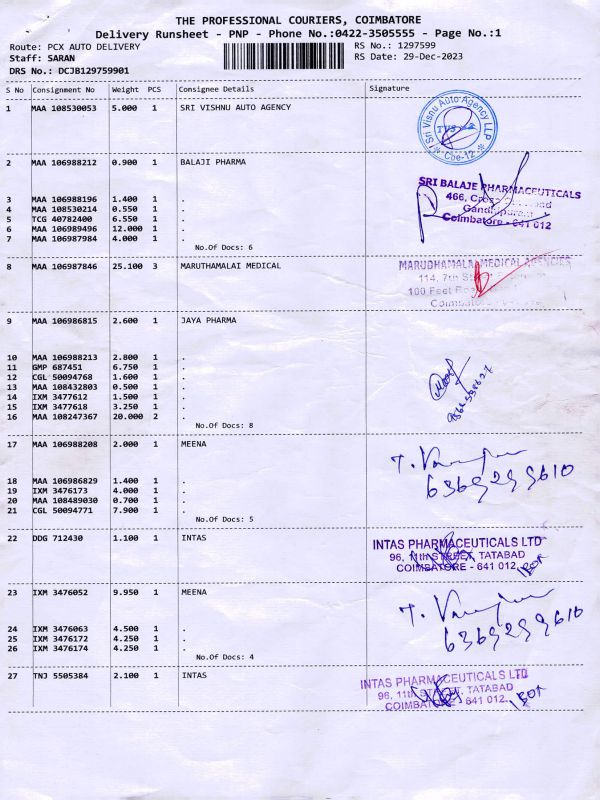 THE PROFESSIONAL COURIERS, COIMBATORE
Delivery Runsheet - PNP - Phone No.:0422-3505555 - Page No.:1
Route: PCX AUTO DELIVERY RS No.: 1297599
Staff: SARAN RS Date: 29-Dec-2023
DRS No.: DCJB129759901
S No Consignment No Weight PCS Consignee Details Signature
1 MAA 108530053 5.000 1 SRI VISHNU AUTO AGENCY
Sri Visnu Auto Agency LLP
TVS
Cbe-12
2 MAA 106988212 0.900 1 BALAJI PHARMA
SRI BALAJE PHARMACEUTICALS
466, Cross
Gandhipuram
Coimbatore - 641 012
3 MAA 106988196 1.400 1 .
4 MAA 108530214 0.550 1 .
5 TCG 40782400 6.550 1 .
6 MAA 106989496 12.000 1 .
7 MAA 106987984 4.000 1 .
No.Of Docs: 6
8 MAA 106987846 25.100 3 MARUTHAMALAI MEDICAL
MARUDHAMALAI MEDICAL AGENCIES
114, 7th
100 Feet
9 MAA 106986815 2.600 1 JAYA PHARMA
10 MAA 106988213 2.800 1 .
11 GMP 687451 6.750 1 .
12 CGL 50094768 1.600 1 .
13 MAA 108432803 0.500 1 .
14 IXM 3477612 1.500 1 .
15 IXM 3477618 3.250 1 .
16 MAA 108247367 20.000 2 .
No.Of Docs: 8
17 MAA 106988208 2.000 1 MEENA
6369299610
18 MAA 106986829 1.400 1 .
19 IXM 3476173 4.000 1 .
20 MAA 108489030 0.700 1 .
21 CGL 50094771 7.900 1 .
No.Of Docs: 5
22 DDG 712430 1.100 1 INTAS
INTAS PHARMACEUTICALS LTD
96, 11th STREET, TATABAD
COIMBATORE - 641 012.
23 IXM 3476052 9.950 1 MEENA
6369299610
24 IXM 3476063 4.500 1 .
25 IXM 3476172 4.250 1 .
26 IXM 3476174 4.250 1 .
No.Of Docs: 4
27 TNJ 5505384 2.100 1 INTAS
INTAS PHARMACEUTICALS LTD
96, 11th STREET, TATABAD
COIMBATORE - 641 012.